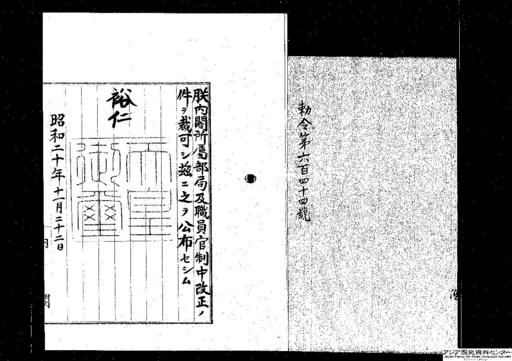 勅令第六百四十四號
朕内閣所屬部局及職員官制中改正ノ
件ヲ裁可シ茲ニ之ヲ公布セシム
裕仁
天皇御璽
昭和二十年十一月二十二日
内閣
アジア歴史資料センター